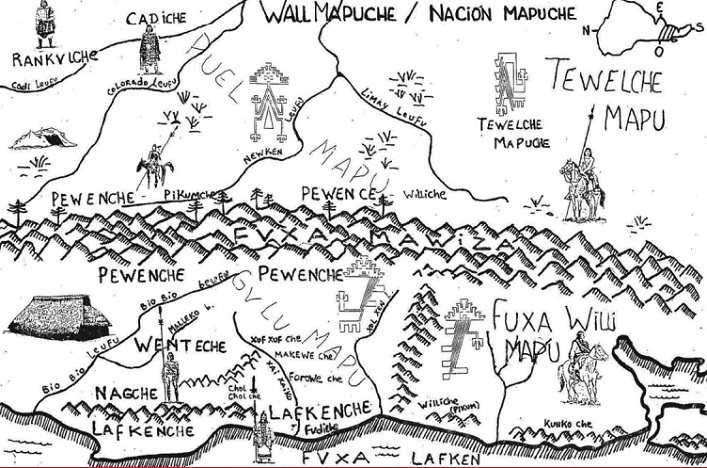 WALLMAPUCHE / NACIÓN MAPUCHE
E
N
S
O
CADICHE
RANKVLCHE
CADI LEUFU
COLORADO LEUFU
PUEL
MAPU
NEWKEN LEUFU
LIMAY LEUFU
TEWELCHE
MAPUCHE
TEWELCHE
MAPU
PEWENCHE - PIKUMCHE
PEWENCE
WILLICHE
FVXA MAWIZA
PEWENCHE
PEWENCHE
GVLU MAPU
BIO BIO LEUFU
MALLEKO L.
BIO BIO LEUFU
WENTECHE
XUF XUF CHE
MAKEWE CHE
FOROWE CHE
XAI XAIKO
CHOL
CHOL CHE
NAGCHE
LAFKENCHE
LAFKENCHE
FUDICHE
FUXA WILLI
MAPU
WILLICHE
(PIKUM)
KUNKO CHE
FVXA LAFKEN